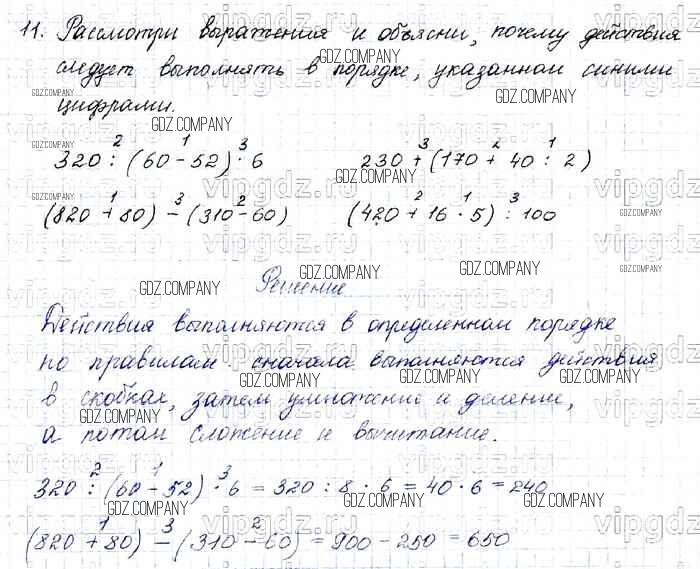 11. Рассмотри выражения и объясни, почему действия
следует выполнять в порядке, указанном синими
цифрами.
2 1 3
320 : (60 - 52) · 6
3 2 1
230 + (170 + 40 : 2)
1 3 2
(820 + 80) - (310 - 60)
2 1 3
(420 + 16 · 5) : 100
Решение
Действия выполняются в определенном порядке
по правилам: сначала выполняются действия
в скобках, затем умножение и деление,
а потом сложение и вычитание.
2 1 3
320 : (60 - 52) · 6 = 320 : 8 · 6 = 40 · 6 = 240
1 3 2
(820 + 80) - (310 - 60) = 900 - 250 = 650
GDZ.COMPANY
vipgdz.ru